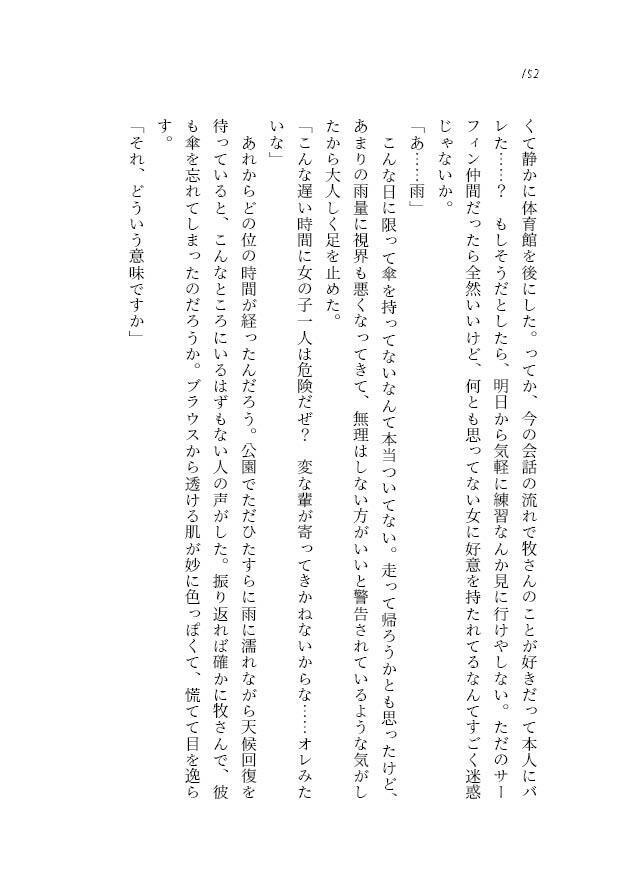 152
くて静かに体育館を後にした。ってか、今の会話の流れで牧さんのことが好きだって本人にバ
レた……？　もしそうだとしたら、明日から気軽に練習なんか見に行けやしない。ただのサー
フィン仲間だったら全然いいけど、何とも思ってない女に好意を持たれてるなんてすごく迷惑
じゃないか。
「あ……雨」
　こんな日に限って傘を持ってないなんて本当ついてない。走って帰ろうかとも思ったけど、
あまりの雨量に視界も悪くなってきて、無理はしない方がいいと警告されているような気がし
たから大人しく足を止めた。
「こんな遅い時間に女の子一人は危険だぜ？　変な輩が寄ってきかねないからな……オレみた
いな」
　あれからどの位の時間が経ったんだろう。公園でただひたすらに雨に濡れながら天候回復を
待っていると、こんなところにいるはずもない人の声がした。振り返れば確かに牧さんで、彼
も傘を忘れてしまったのだろうか。ブラウスから透ける肌が妙に色っぽくて、慌てて目を逸ら
す。
「それ、どういう意味ですか」